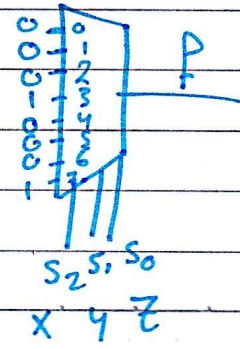 0 0
0 1 P
0 2
1 3
0 4
0 5
0 6
1 7
S2 S1 S0
X Y Z